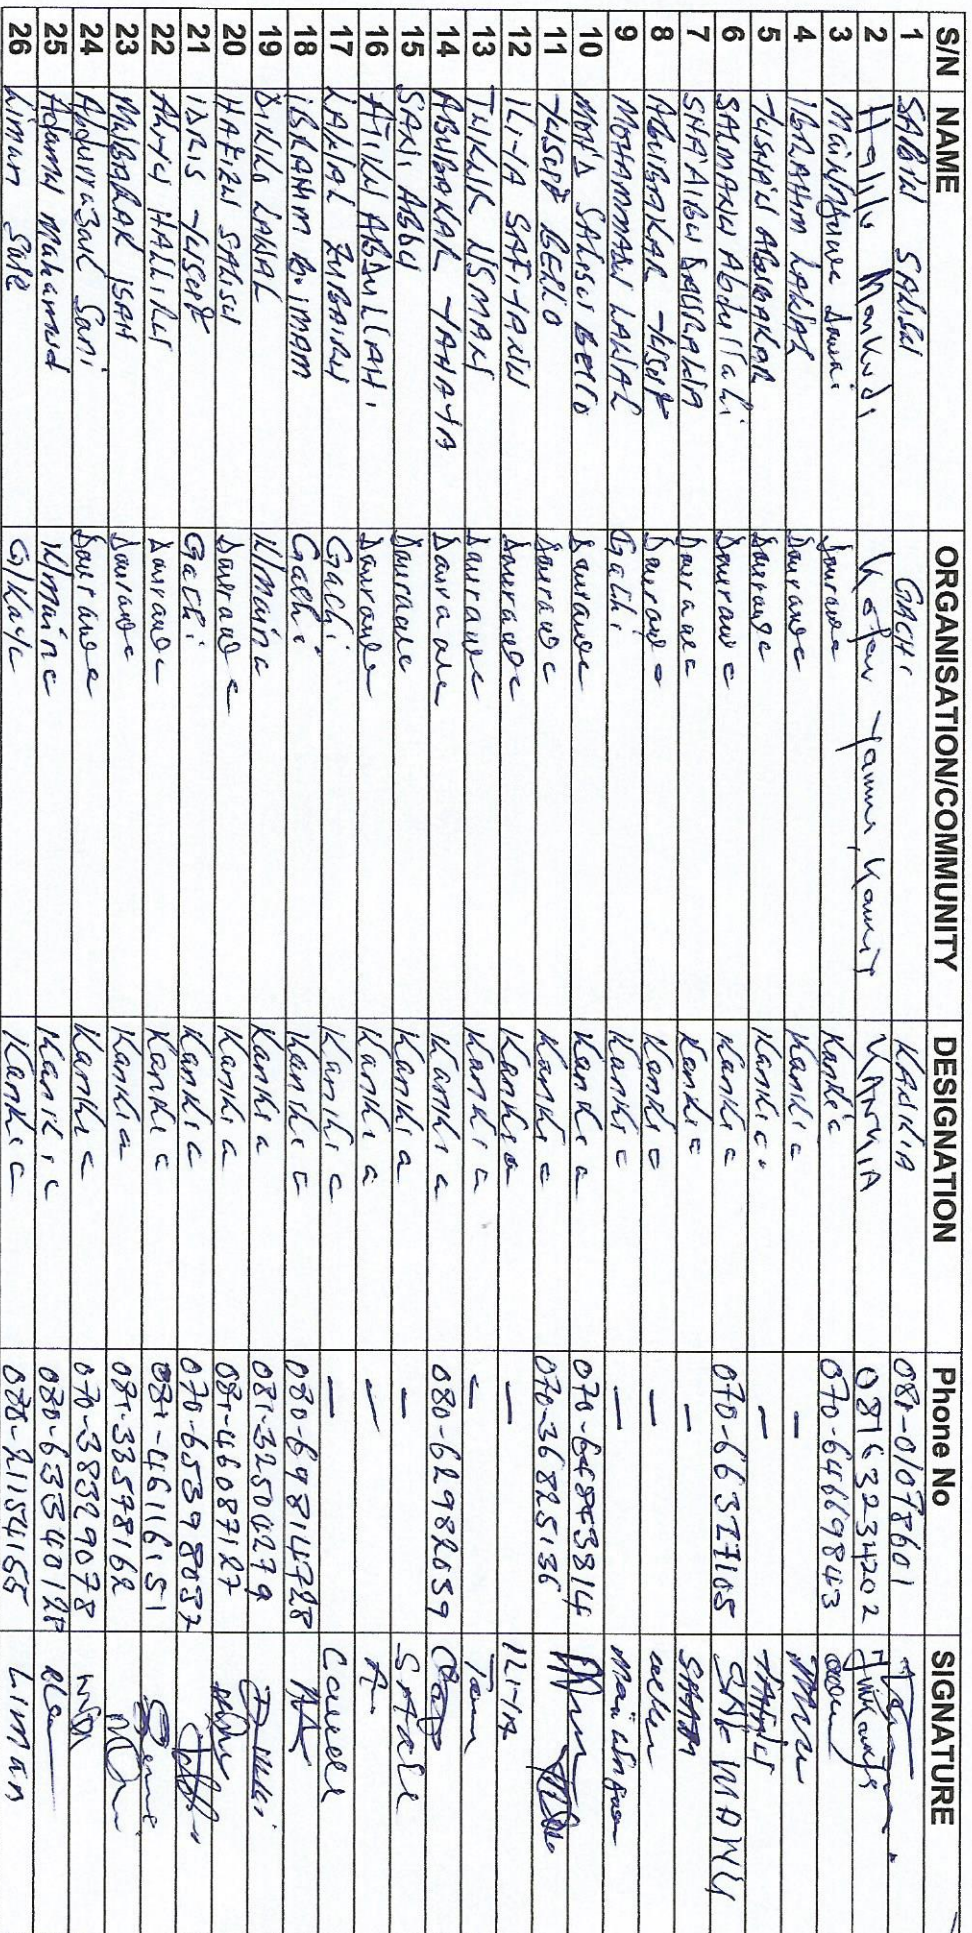 S/N NAME ORGANISATION/COMMUNITY DESIGNATION Phone No SIGNATURE
1 SABIU SALISU GACHI KANKIA 081-01078601
2 Halilu Mankudi Kofar Yamma, Kankia KANKIA 08163234202
3 Kankia 070-64669843
4 IBRAHIM LAWAL Daurawa Kankia -
5 YUSHA'U ABUBAKAR Daurawa Kankia -
6 SALMANU Abdullahi Daurawa Kankia 070-66377105 SALMANU
7 SHA'AIBU DAURAWA Daurawa Kankia -
8 ABUBAKAR YUSUF Daurawa Kankia -
9 MOHAMMADU LAWAL Gachi Kankia -
10 MOH'D SALISU BELLO Daurawa Kankia 070-64843314
11 YUSUF BELLO Daurawa Kankia 070-36825136
12 ILIYA SAFIYANU Daurawa Kankia - ILIYA
13 TUKUR USMAN Daurawa Kankia -
14 ABUBAKAR YAHAYA Daurawa Kankia 080-62982039
15 SANI ABBU Daurawa Kankia -
16 ATIKU ABDULLAHI Daurawa Kankia -
17 LAWAL ZUBAIRU Gachi Kankia - Lawal
18 IBRAHIM B. IMAM Gachi Kankia 080-69814728
19 DIKKO LAWAL K/Maina Kankia 081-32500279
20 HAFIZU SALISU Daurawa Kankia 081-46087127
21 IDRIS YUSUF Gachi Kankia 070-65398037
22 HALLIRU Daurawa Kankia 081-46116151
23 MUBARAK ISAH Daurawa Kankia 081-33578162
24 Abdurrazak Sani Daurawa Kankia 070-38329078
25 Adamu Mahamud K/Maina Kankia 080-63340128
26 Liman Sale G/Kaya Kankia 080-21154155 Liman